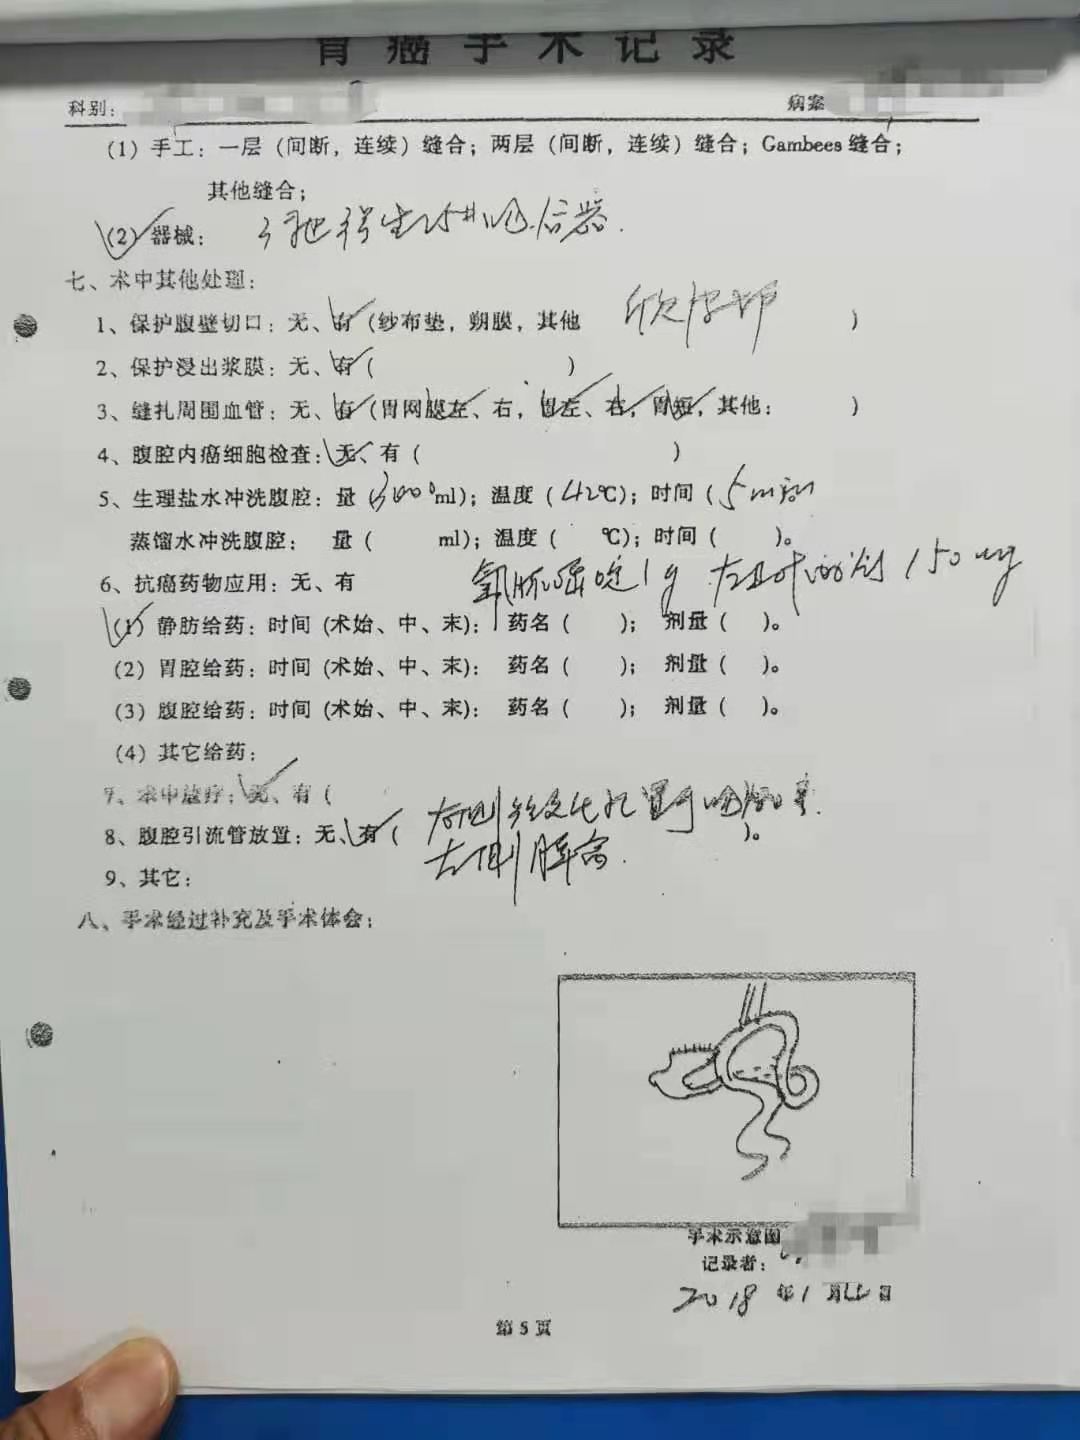 胃癌手术记录
科别： 病案
(1) 手工：一层（间断，连续）缝合；两层（间断，连续）缝合；Gambees 缝合；
其他缝合；
(2) 器械： 吻合器.
七、术中其他处理：
1、保护腹壁切口：无、有（纱布垫，朔膜，其他 ）
2、保护浸出浆膜：无、有（ ）
3、缝扎周围血管：无、有（胃网膜左、右，胃左、右，胃短，其他： ）
4、腹腔内癌细胞检查：无、有（ ）
5、生理盐水冲洗腹腔：量（3000ml）；温度（42℃）；时间（5min
蒸馏水冲洗腹腔： 量（ ml）；温度（ ℃）；时间（ ）。
6、抗癌药物应用：无、有 氟脲嘧啶1g 150mg
(1) 静肪给药：时间（术始、中、末）： 药名（ ）； 剂量（ ）。
(2) 胃腔给药：时间（术始、中、末）： 药名（ ）； 剂量（ ）。
(3) 腹腔给药：时间（术始、中、末）： 药名（ ）； 剂量（ ）。
(4) 其它给药：
7、术中放疗：无、有（
8、腹腔引流管放置：无、有（ 右侧 置于吻合口 ）。
左侧脾窝.
9、其它：
八、手术经过补充及手术体会：
手术示意图
记录者：
2018 年 1 月 22 日
第 5 页